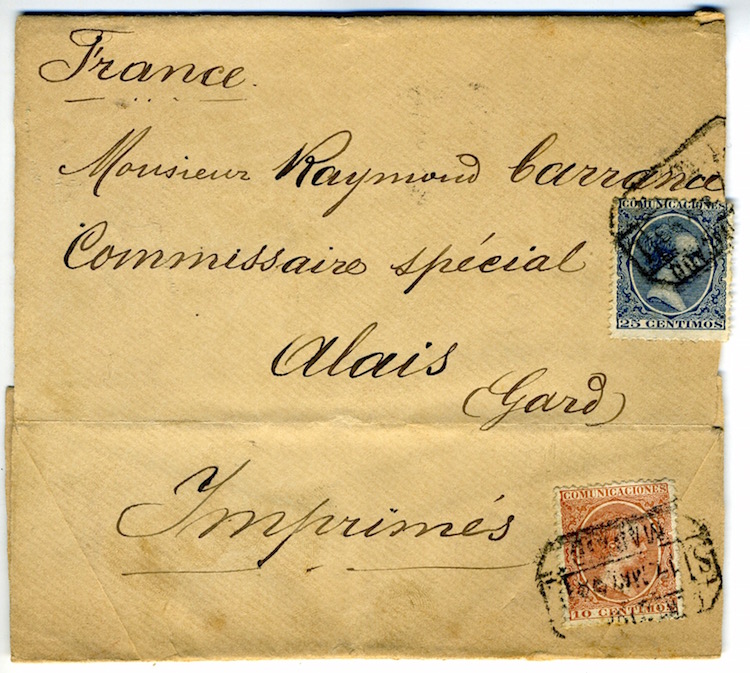 France
Monsieur Raymond Carrance
COMUNICACIONES
Commissaire spécial
25 CENTIMOS
Alais
(Gard)
COMUNICACIONES
Imprimés
10 CENTIMOS